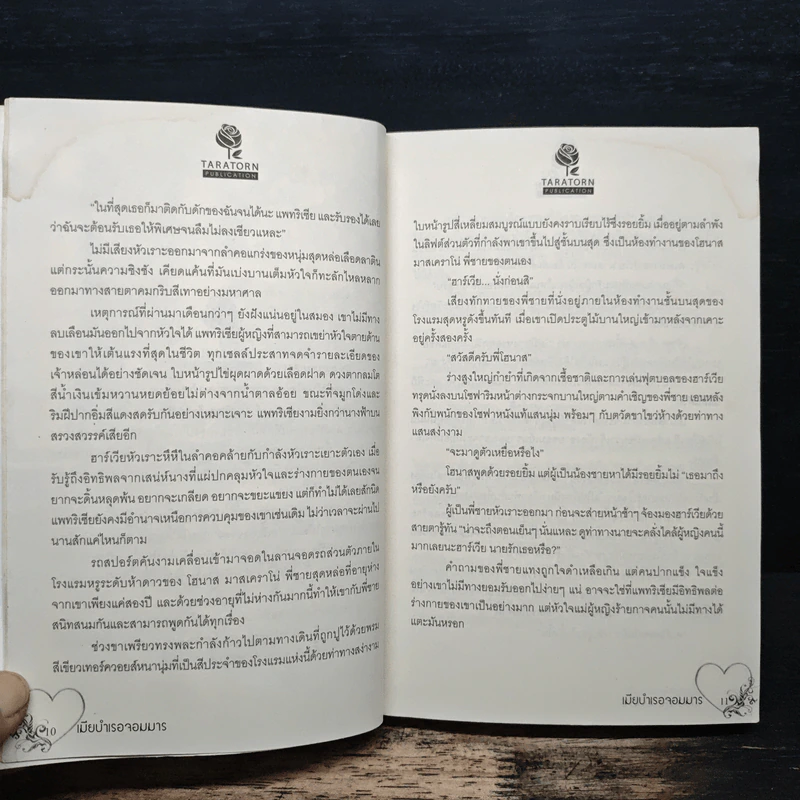 TARATORN
PUBLICATION
"ในที่สุดเธอก็มาติดกับดักของฉันจนได้นะ แพทริเซีย และรับรองได้เลย
ว่าฉันจะต้อนรับเธอให้พิเศษจนลืมไม่ลงเชียวแหละ"
ไม่มีเสียงหัวเราะออกมาจากลำคอแกร่งของหนุ่มสุดหล่อเลือดลาติน
แต่กระนั้นความชิงชัง เคียดแค้นที่มันเบ่งบานเต็มหัวใจก็ทะลักไหลหลาก
ออกมาทางสายตาคมกริบสีเทาอย่างมหาศาล
เหตุการณ์ที่ผ่านมาเดือนกว่าๆ ยังฝังแน่นอยู่ในสมอง เขาไม่มีทาง
ลบเลือนมันออกไปจากหัวใจได้ แพทริเซียผู้หญิงที่สามารถเขย่าหัวใจตายด้าน
ของเขาให้เต้นแรงที่สุดในชีวิต ทุกเซลล์ประสาทจดจำรายละเอียดของ
เจ้าหล่อนได้อย่างชัดเจน ใบหน้ารูปไข่ผุดผาดด้วยเลือดฝาด ดวงตากลมโต
สีน้ำเงินเข้มหวานหยดย้อยไม่ต่างจากน้ำตาลอ้อย ขณะที่จมูกโด่งและ
ริมฝีปากอิ่มสีแดงสดรับกันอย่างเหมาะเจาะ แพทริเซียงามยิ่งกว่านางฟ้าบน
สรวงสวรรค์เสียอีก
ฮาร์เวียหัวเราะหึหึในลำคอคล้ายกับกำลังหัวเราะเยาะตัวเอง เมื่อ
รับรู้ถึงอิทธิพลจากเสน่ห์นางที่แผ่ปกคลุมหัวใจและร่างกายของตนเองจน
ยากจะดิ้นหลุดพ้น อยากจะเกลียด อยากจะขยะแขยง แต่ก็ทำไม่ได้เลยสักนิด
แพทริเซียยังคงมีอำนาจเหนือการควบคุมของเขาเช่นเดิม ไม่ว่าเวลาจะผ่านไป
นานสักแค่ไหนก็ตาม
รถสปอร์ตคันงามเคลื่อนเข้ามาจอดในลานจอดรถส่วนตัวภายใน
โรงแรมหรูระดับห้าดาวของ โฮนาส มาสเคราโน่ พี่ชายสุดหล่อที่อายุห่าง
จากเขาเพียงแค่สองปี และด้วยช่วงอายุที่ไม่ห่างกันมากนี้ทำให้เขากับพี่ชาย
สนิทสนมกันและสามารถพูดกันได้ทุกเรื่อง
ช่วงขาเพรียวทรงพละกำลังก้าวไปตามทางเดินที่ถูกปูไว้ด้วยพรม
สีเขียวเทอร์ควอยส์หนานุ่มที่เป็นสีประจำของโรงแรมแห่งนี้ด้วยท่าทางสง่างาม
10 เมียบำเรอจอมมาร
TARATORN
PUBLICATION
ใบหน้ารูปสี่เหลี่ยมสมบูรณ์แบบยังคงราบเรียบไร้ซึ่งรอยยิ้ม เมื่ออยู่ตามลำพัง
ในลิฟต์ส่วนตัวที่กำลังพาเขาขึ้นไปสู่ชั้นบนสุด ซึ่งเป็นห้องทำงานของโฮนาส
มาสเคราโน่ พี่ชายของตนเอง
"ฮาร์เวีย... นั่งก่อนสิ"
เสียงทักทายของพี่ชายที่นั่งอยู่ภายในห้องทำงานชั้นบนสุดของ
โรงแรมสุดหรูดังขึ้นทันที เมื่อเขาเปิดประตูไม้บานใหญ่เข้ามาหลังจากเคาะ
อยู่ครั้งสองครั้ง
"สวัสดีครับพี่โฮนาส"
ร่างสูงใหญ่กำยำที่เกิดจากเชื้อชาติและการเล่นฟุตบอลของฮาร์เวีย
ทรุดนั่งลงบนโซฟาริมหน้าต่างกระจกบานใหญ่ตามคำเชิญของพี่ชาย เอนหลัง
พิงกับพนักของโซฟาหนังแท้แสนนุ่ม พร้อมๆ กับตวัดขาไขว่ห้างด้วยท่าทาง
แสนสง่างาม
"จะมาดูตัวเหยื่อหรือไง"
โฮนาสพูดด้วยรอยยิ้ม แต่ผู้เป็นน้องชายหาได้มีรอยยิ้มไม่ "เธอมาถึง
หรือยังครับ"
ผู้เป็นพี่ชายหัวเราะออกมา ก่อนจะส่ายหน้าช้าๆ จ้องมองฮาร์เวียด้วย
สายตารู้ทัน "น่าจะถึงตอนเย็นๆ นั่นแหละ ดูท่าทางนายจะคลั่งไคล้ผู้หญิงคนนี้
มากเลยนะฮาร์เวีย นายรักเธอหรือ?"
คำถามของพี่ชายแทงถูกใจดำเหลือเกิน แต่คนปากแข็ง ใจแข็ง
อย่างเขาไม่มีทางยอมรับออกไปง่ายๆ แน่ อาจจะใช่ที่แพทริเซียมีอิทธิพลต่อ
ร่างกายของเขาเป็นอย่างมาก แต่หัวใจแม่ผู้หญิงร้ายกาจคนนั้นไม่มีทางได้
แตะมันหรอก
เมียบำเรอจอมมาร 11